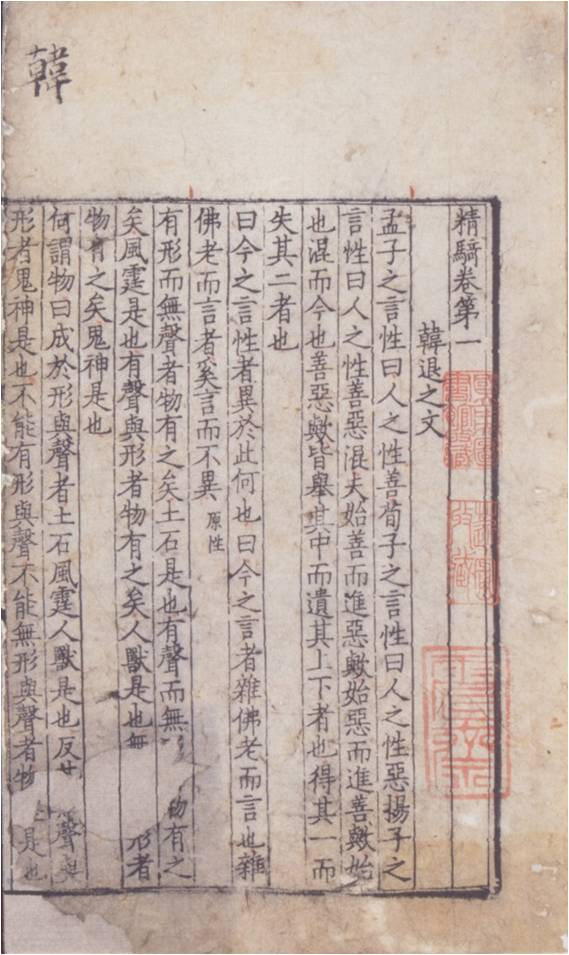 韓
精騎卷第一
韓退之文
孟子之言性曰人之性善荀子之言性曰人之性惡揚子之
言性曰人之性善惡混夫始善而進惡歟始惡而進善歟始
也混而今也善惡歟皆舉其中而遺其上下者也得其一而
失其二者也
曰今之言性者異於此何也曰今之言者雜佛老而言也雜
佛老而言者奚言而不異 原性
有形而無聲者物有之矣土石是也有聲而無 有之
矣風霆是也有聲與形者物有之矣人獸是也無 者
物有之矣鬼神是也
何謂物曰成於形與聲者土石風霆人獸是也反 聲與
形者鬼神是也不能有形與聲不能無形與聲者物 是也